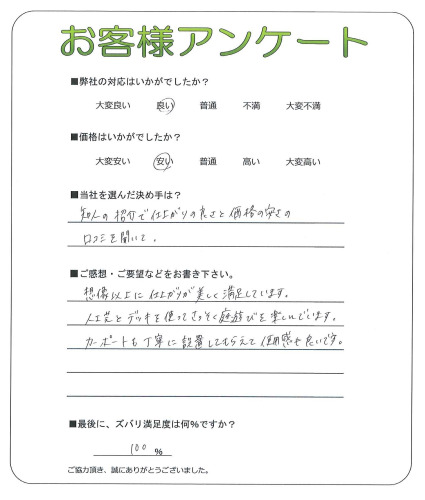 お客様アンケート
■弊社の対応はいかがでしたか？
大変良い 良い 普通 不満 大変不満
■価格はいかがでしたか？
大変安い 安い 普通 高い 大変高い
■当社を選んだ決め手は？
知人の紹介で仕上がりの良さと価格の安さの
口コミを聞いて。
■ご感想・ご要望などをお書き下さい。
想像以上に仕上がりが美しく満足しています。
人工芝とデッキを使ってさっそく庭遊びを楽しんでいます。
カーポートも丁寧に設置してもらえて使用感も良いです。
■最後に、ズバリ満足度は何％ですか？
100 ％
ご協力頂き、誠にありがとうございました。